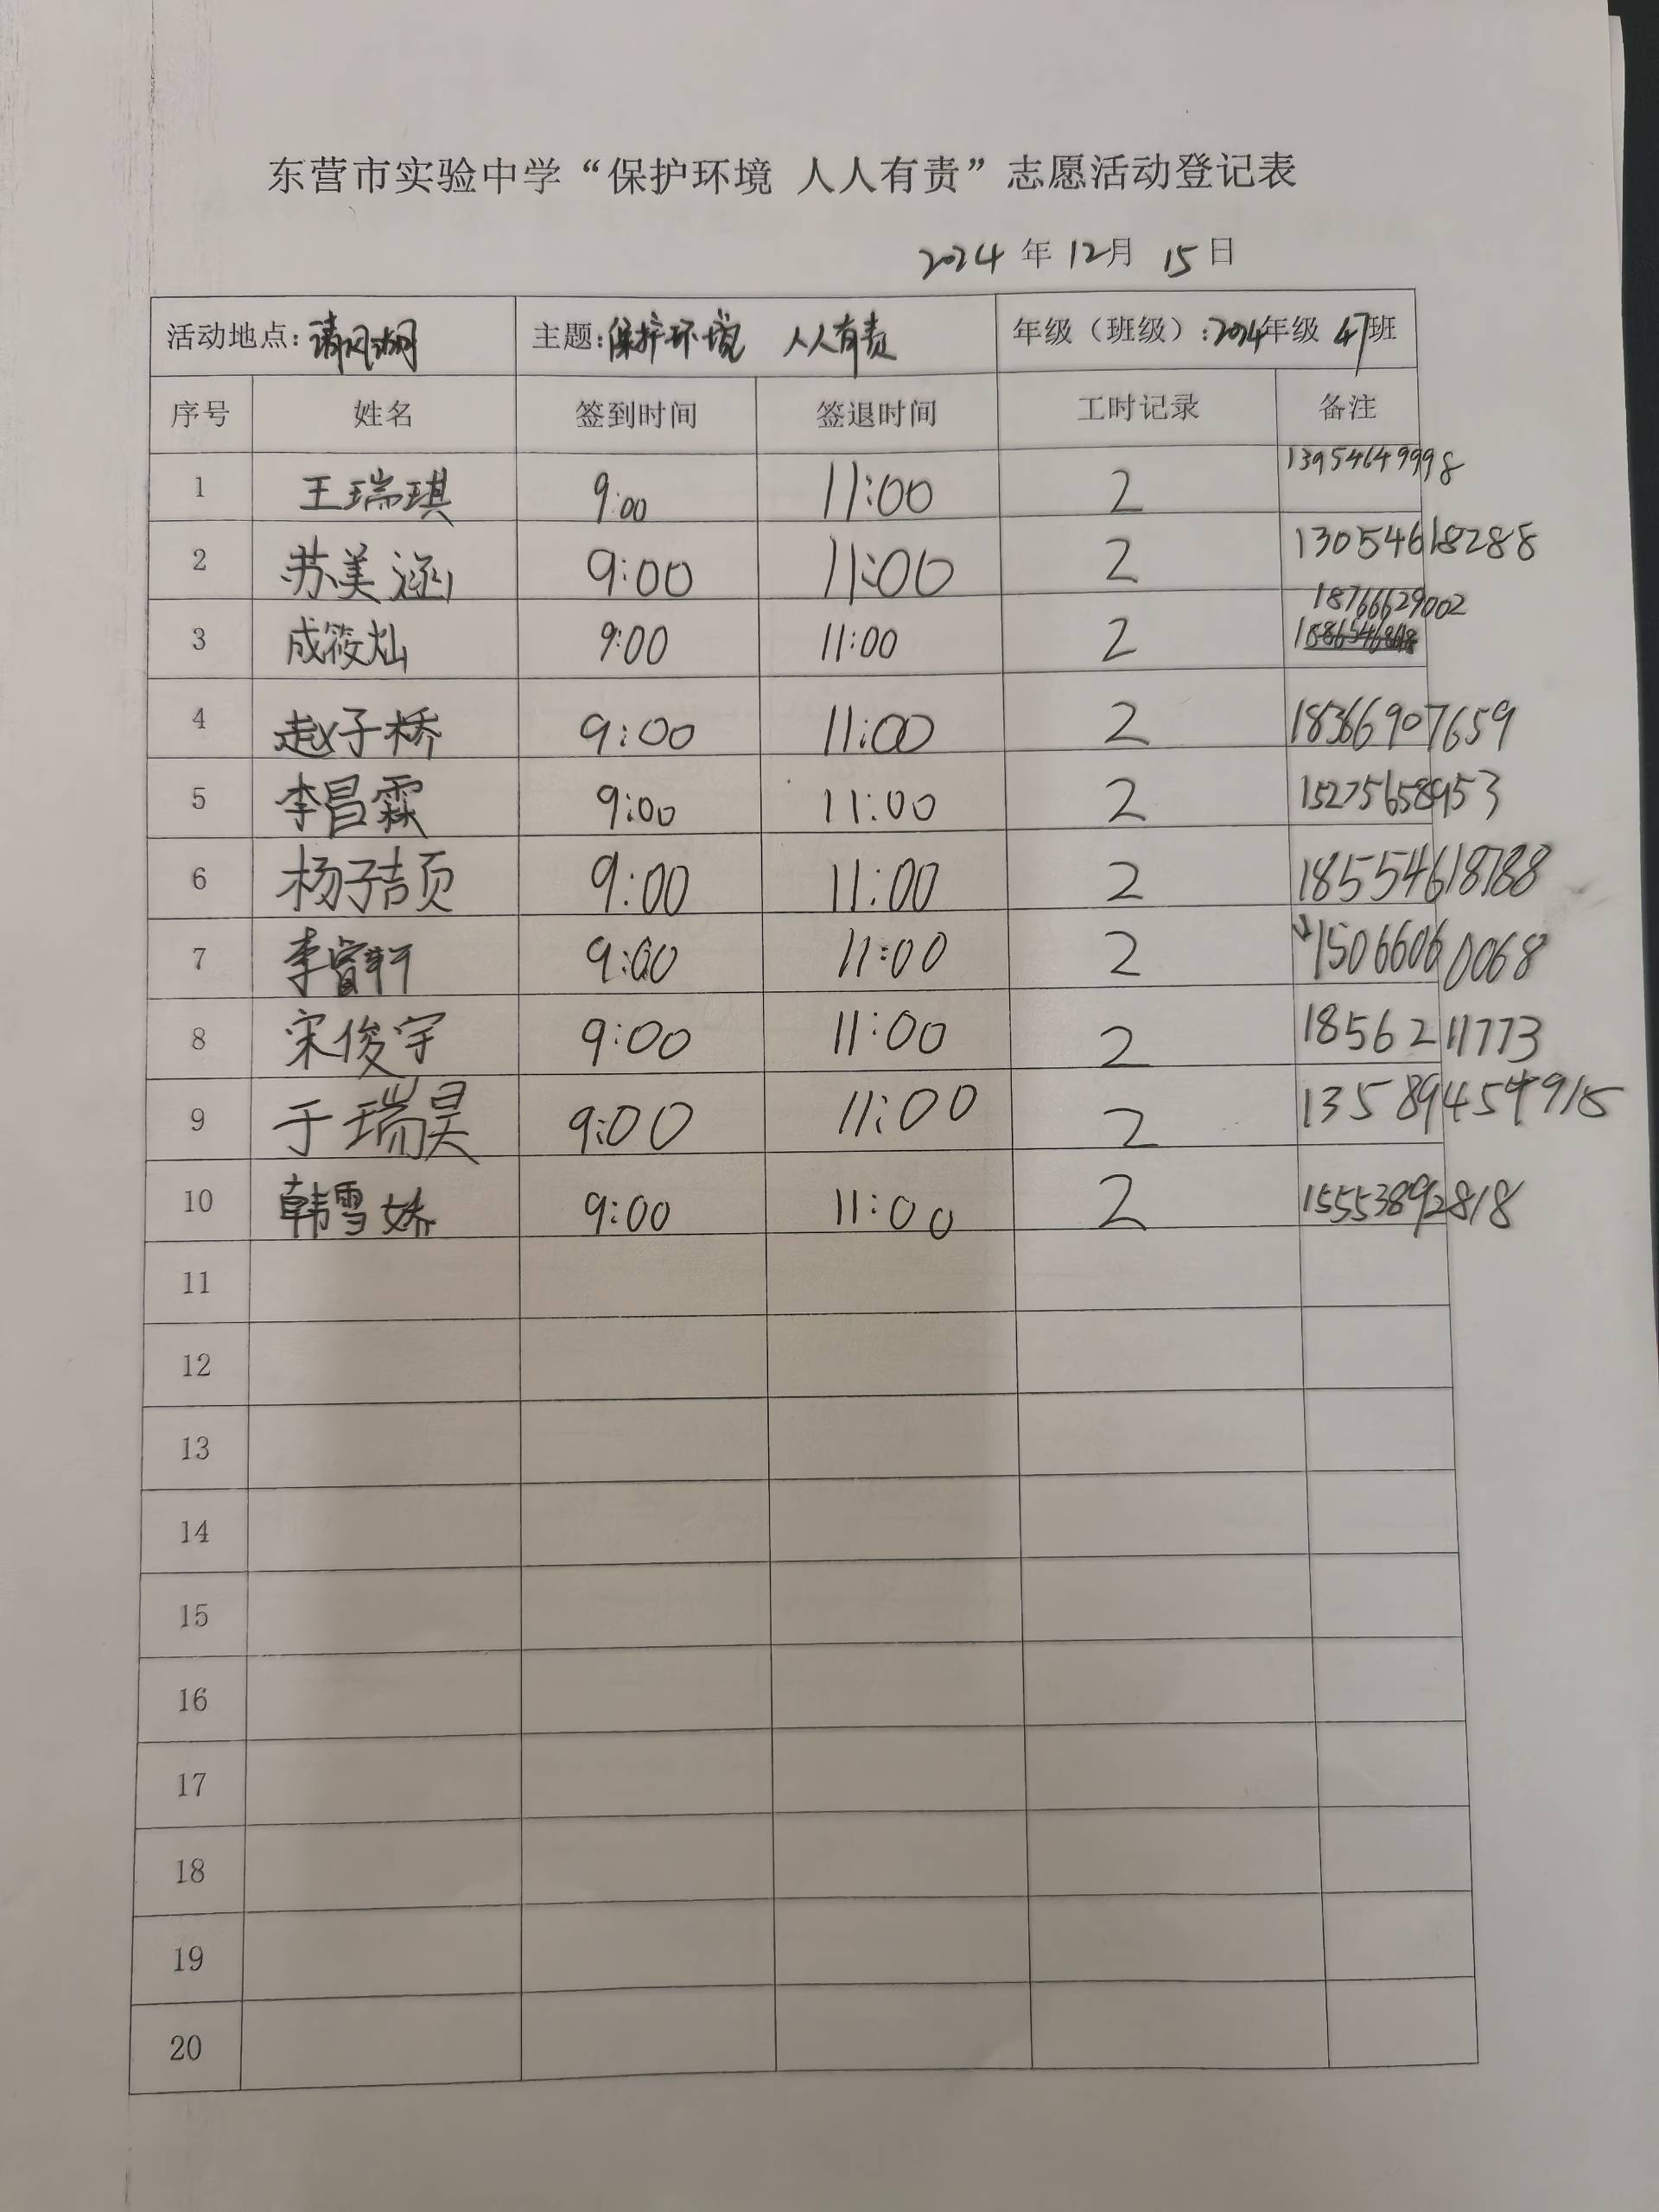 东营市实验中学“保护环境 人人有责”志愿活动登记表
2024 年 12月 15日
活动地点：清风湖 主题：保护环境 人人有责 年级（班级）：2024年级 47班
序号 姓名 签到时间 签退时间 工时记录 备注
1 王瑞琪 9:00 11:00 2 13954649998
2 苏美涵 9:00 11:00 2 13054618288
18766629002
3 成筱灿 9:00 11:00 2
4 赵子桥 9:00 11:00 2 18366907659
5 李昌霖 9:00 11:00 2 15275658953
6 杨子吉页 9:00 11:00 2 18554618788
7 李睿轩 9:00 11:00 2 15066060068
8 宋俊宇 9:00 11:00 2 18562111773
9 于瑞昊 9:00 11:00 2
10 韩雪娇 9:00 11:00 2 15553892818
11
12
13
14
15
16
17
18
19
20